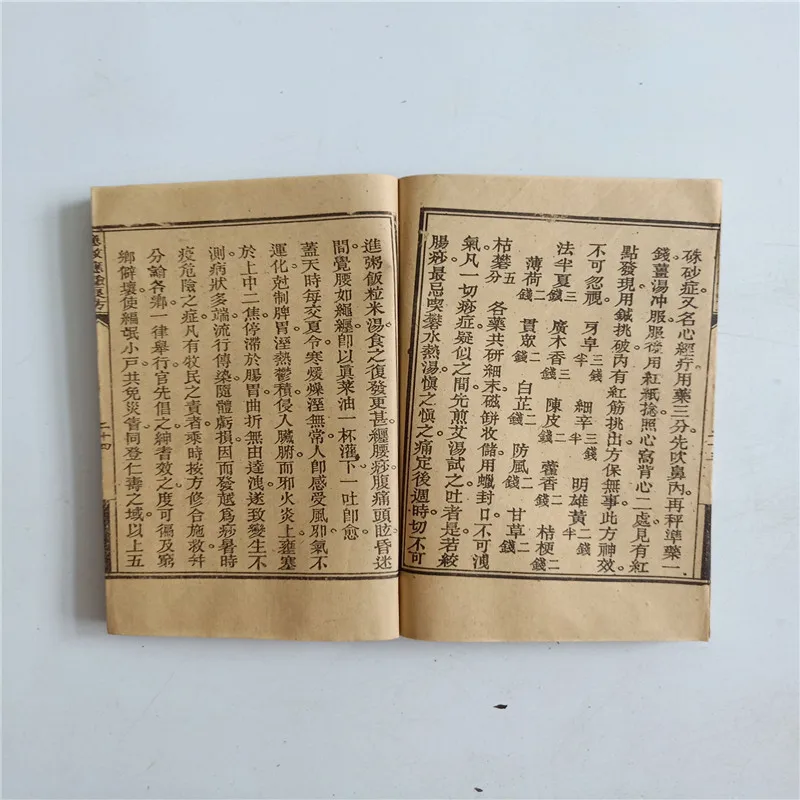 硃砂症又名心經疔用藥三分先吹鼻內再秤準藥一
錢薑湯冲服服後用紅紙捻照心窩背心二處見有紅
點發現用鍼挑破內有紅筋挑出方保無事此方神效
不可忽視 牙皁三錢半 細辛三錢半 明雄黃二錢半
法半夏三錢 廣木香三錢 陳皮二錢 藿香二錢 桔梗二錢
薄荷二錢 貫眾二錢 白芷二錢 防風二錢 甘草二錢
枯礬五分 各藥共研細末磁缾收儲用蠟封口不可洩
氣凡一切痧症疑似之間先煎艾湯試之吐者是若絞
腸痧最忌喫礬水熱湯愼之愼之痛定後週時切不可
二十三
進粥飯粒米湯食之復發更甚纏腰痧腹痛頭眩昏迷
間覺腰如繩纏卽以眞菜油一杯灌下一吐卽愈
蓋天時每交夏令寒煖燥溼無常人卽感受風邪氣不
運化尅制脾胃溼熱鬱積侵入臟腑而邪火炎上壅塞
於上中二焦停滯於腸胃曲折無由逹洩遂致變生不
測病狀多端流行傳染隨體虧損因而發起爲痧暑時
疫危陰之症凡有牧民之責者乘時按方修合施救幷
分諭各鄉一律舉行官先倡之紳者效之度可徧及窮
鄉僻壤使編氓小戶共免災眚同登仁壽之域以上五
二十四